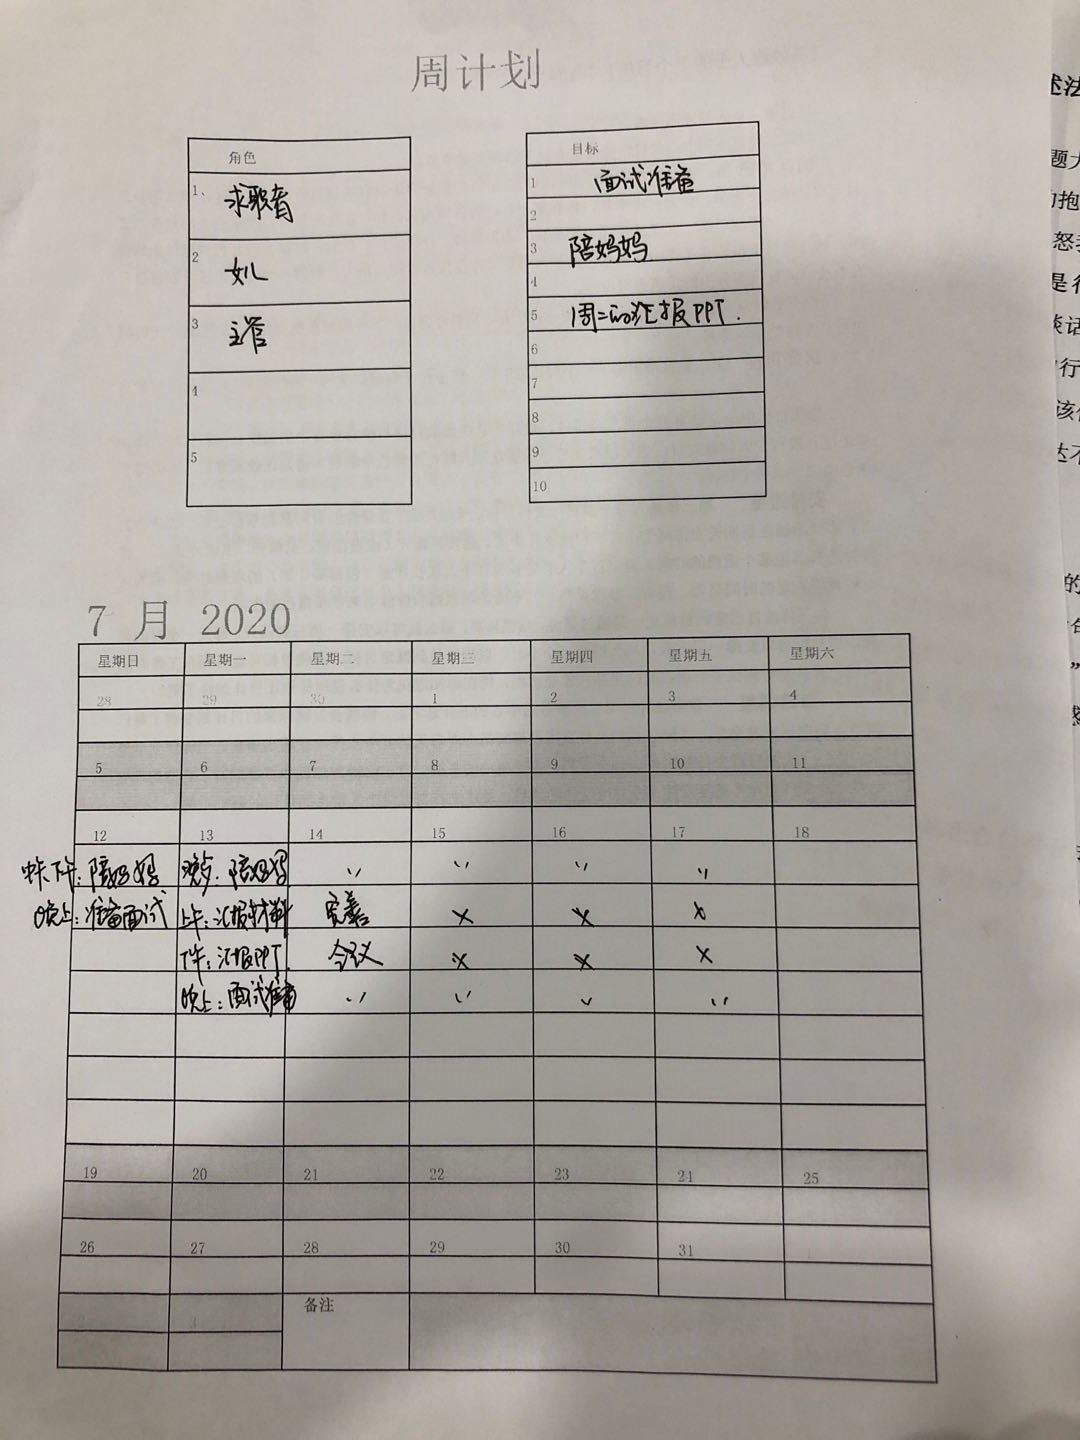 周计划
角色
1、 求职者
2 女儿
3 主管
4
5
目标
1 面试准备
2
3 陪妈妈
4
5 周二的汇报PPT.
6
7
8
9
10
7 月 2020
星期日 星期一 星期二 星期三 星期四 星期五 星期六
28 29 30 1 2 3 4
5 6 7 8 9 10 11
12 13 14 15 16 17 18
下午：陪妈妈 陪妈妈 〃 〃 〃 〃
晚上：准备面试 上午：汇报材料 完善 × × ×
下午：汇报PPT. 会议 × × ×
晚上：面试准备 〃 〃 〃 〃
19 20 21 22 23 24 25
26 27 28 29 30 31 1
2 3 备注
述法
题大
的抱
是很
谈话
行
该
达不
的